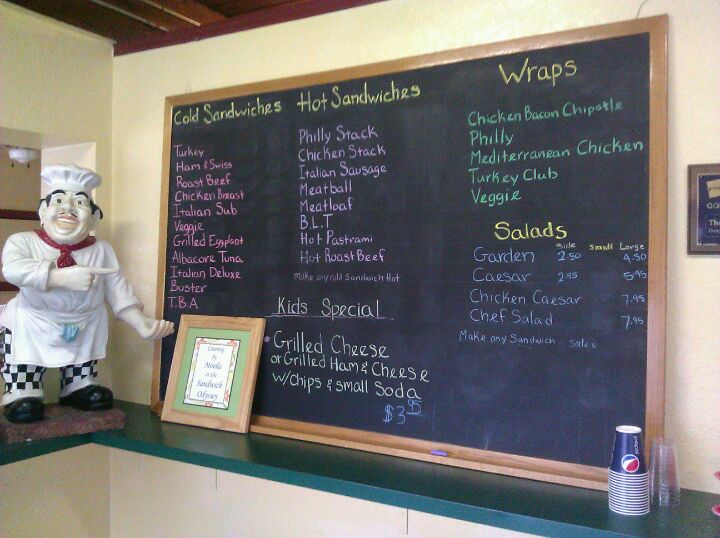 Cold Sandwiches
Turkey
Ham & Swiss
Roast Beef
Chicken Breast
Italian Sub
Veggie
Grilled Eggplant
Albacore Tuna
Italian Deluxe
Buster
T.B.A
Hot Sandwiches
Philly Stack
Chicken Stack
Italian Sausage
Meatball
Meatloaf
B.L.T
Hot Pastrami
Hot Roast Beef
Make any cold Sandwich Hot
Kids Special
Grilled Cheese
or Grilled Ham & Cheese
w/chips & small Soda
$3.95
Wraps
Chicken Bacon Chipotle
Philly
Mediterranean Chicken
Turkey Club
Veggie
Salads
Side Small Large
Garden 2.50 4.50
Caesar 2.95 5.95
Chicken Caesar 7.95
Chef Salad 7.95
Make any Sandwich
Catering
by
at the
Sandwich
Odyssey
pepsi